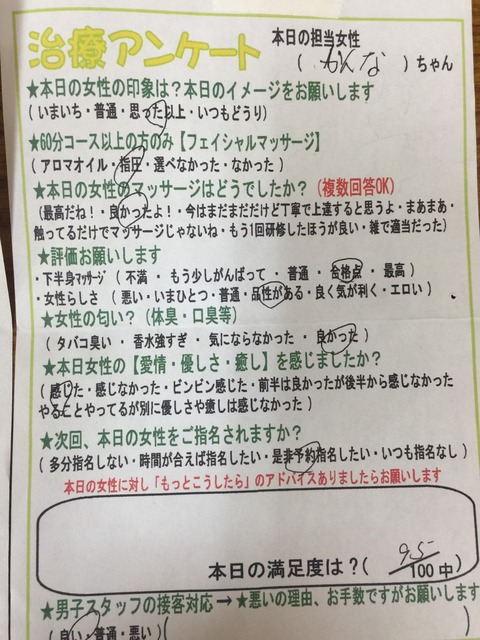 治療アンケート
本日の担当女性
( かんな )ちゃん
★本日の女性の印象は？本日のイメージをお願いします
( いまいち・普通・思った以上・いつもどうり)
★60分コース以上の方のみ【フェイシャルマッサージ】
( アロマオイル・指圧・選べなかった・なかった )
★本日の女性のマッサージはどうでしたか？(複数回答OK)
(最高だね！・良かったよ！・今はまだまだだけど丁寧で上達すると思うよ・まあまあ・
触ってるだけでマッサージじゃないね・もう1回研修したほうが良い・雑で適当だった)
★評価お願いします
・下半身マッサージ ( 不満 ・ もう少しがんばって ・ 普通 ・ 合格点 ・ 最高 )
・女性らしさ ( 悪い・いまひとつ・普通・品性がある・良く気が利く・エロい )
★女性の匂い？ (体臭・口臭等)
( タバコ臭い ・ 香水強すぎ ・ 気にならなかった ・ 良かった )
★本日女性の【愛情・優しさ・癒し】を感じましたか？
( 感じた・感じなかった・ビンビン感じた・前半は良かったが後半から感じなかった
やることやってるが別に優しさや癒しは感じなかった )
★次回、本日の女性をご指名されますか？
( 多分指名しない・時間が合えば指名したい・是非予約指名したい・いつも指名なし )
本日の女性に対し「もっとこうしたら」のアドバイスありましたらお願いします
本日の満足度は？( 95/100中 )
★男子スタッフの接客対応 → ★悪いの理由、お手数ですがお願いします
( 良い・普通・悪い ) ( )